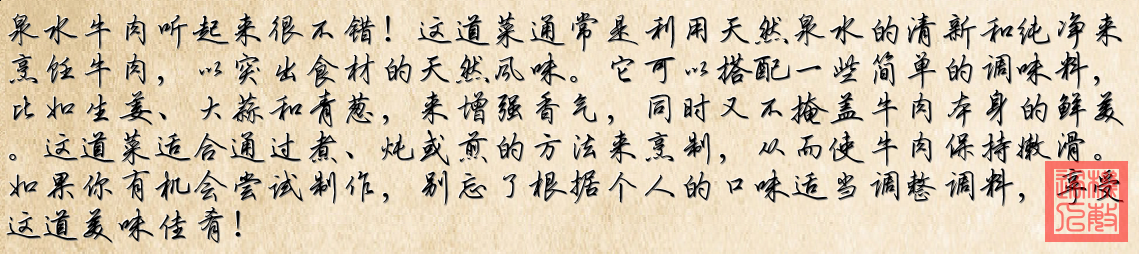 泉水牛肉听起来很不错！这道菜通常是利用天然泉水的清新和纯净来
烹饪牛肉，以突出食材的天然风味。它可以搭配一些简单的调味料，
比如生姜、大蒜和青葱，来增强香气，同时又不掩盖牛肉本身的鲜美
。这道菜适合通过煮、炖或煎的方法来烹制，从而使牛肉保持嫩滑。
如果你有机会尝试制作，别忘了根据个人的口味适当调整调料，享受
这道美味佳肴！